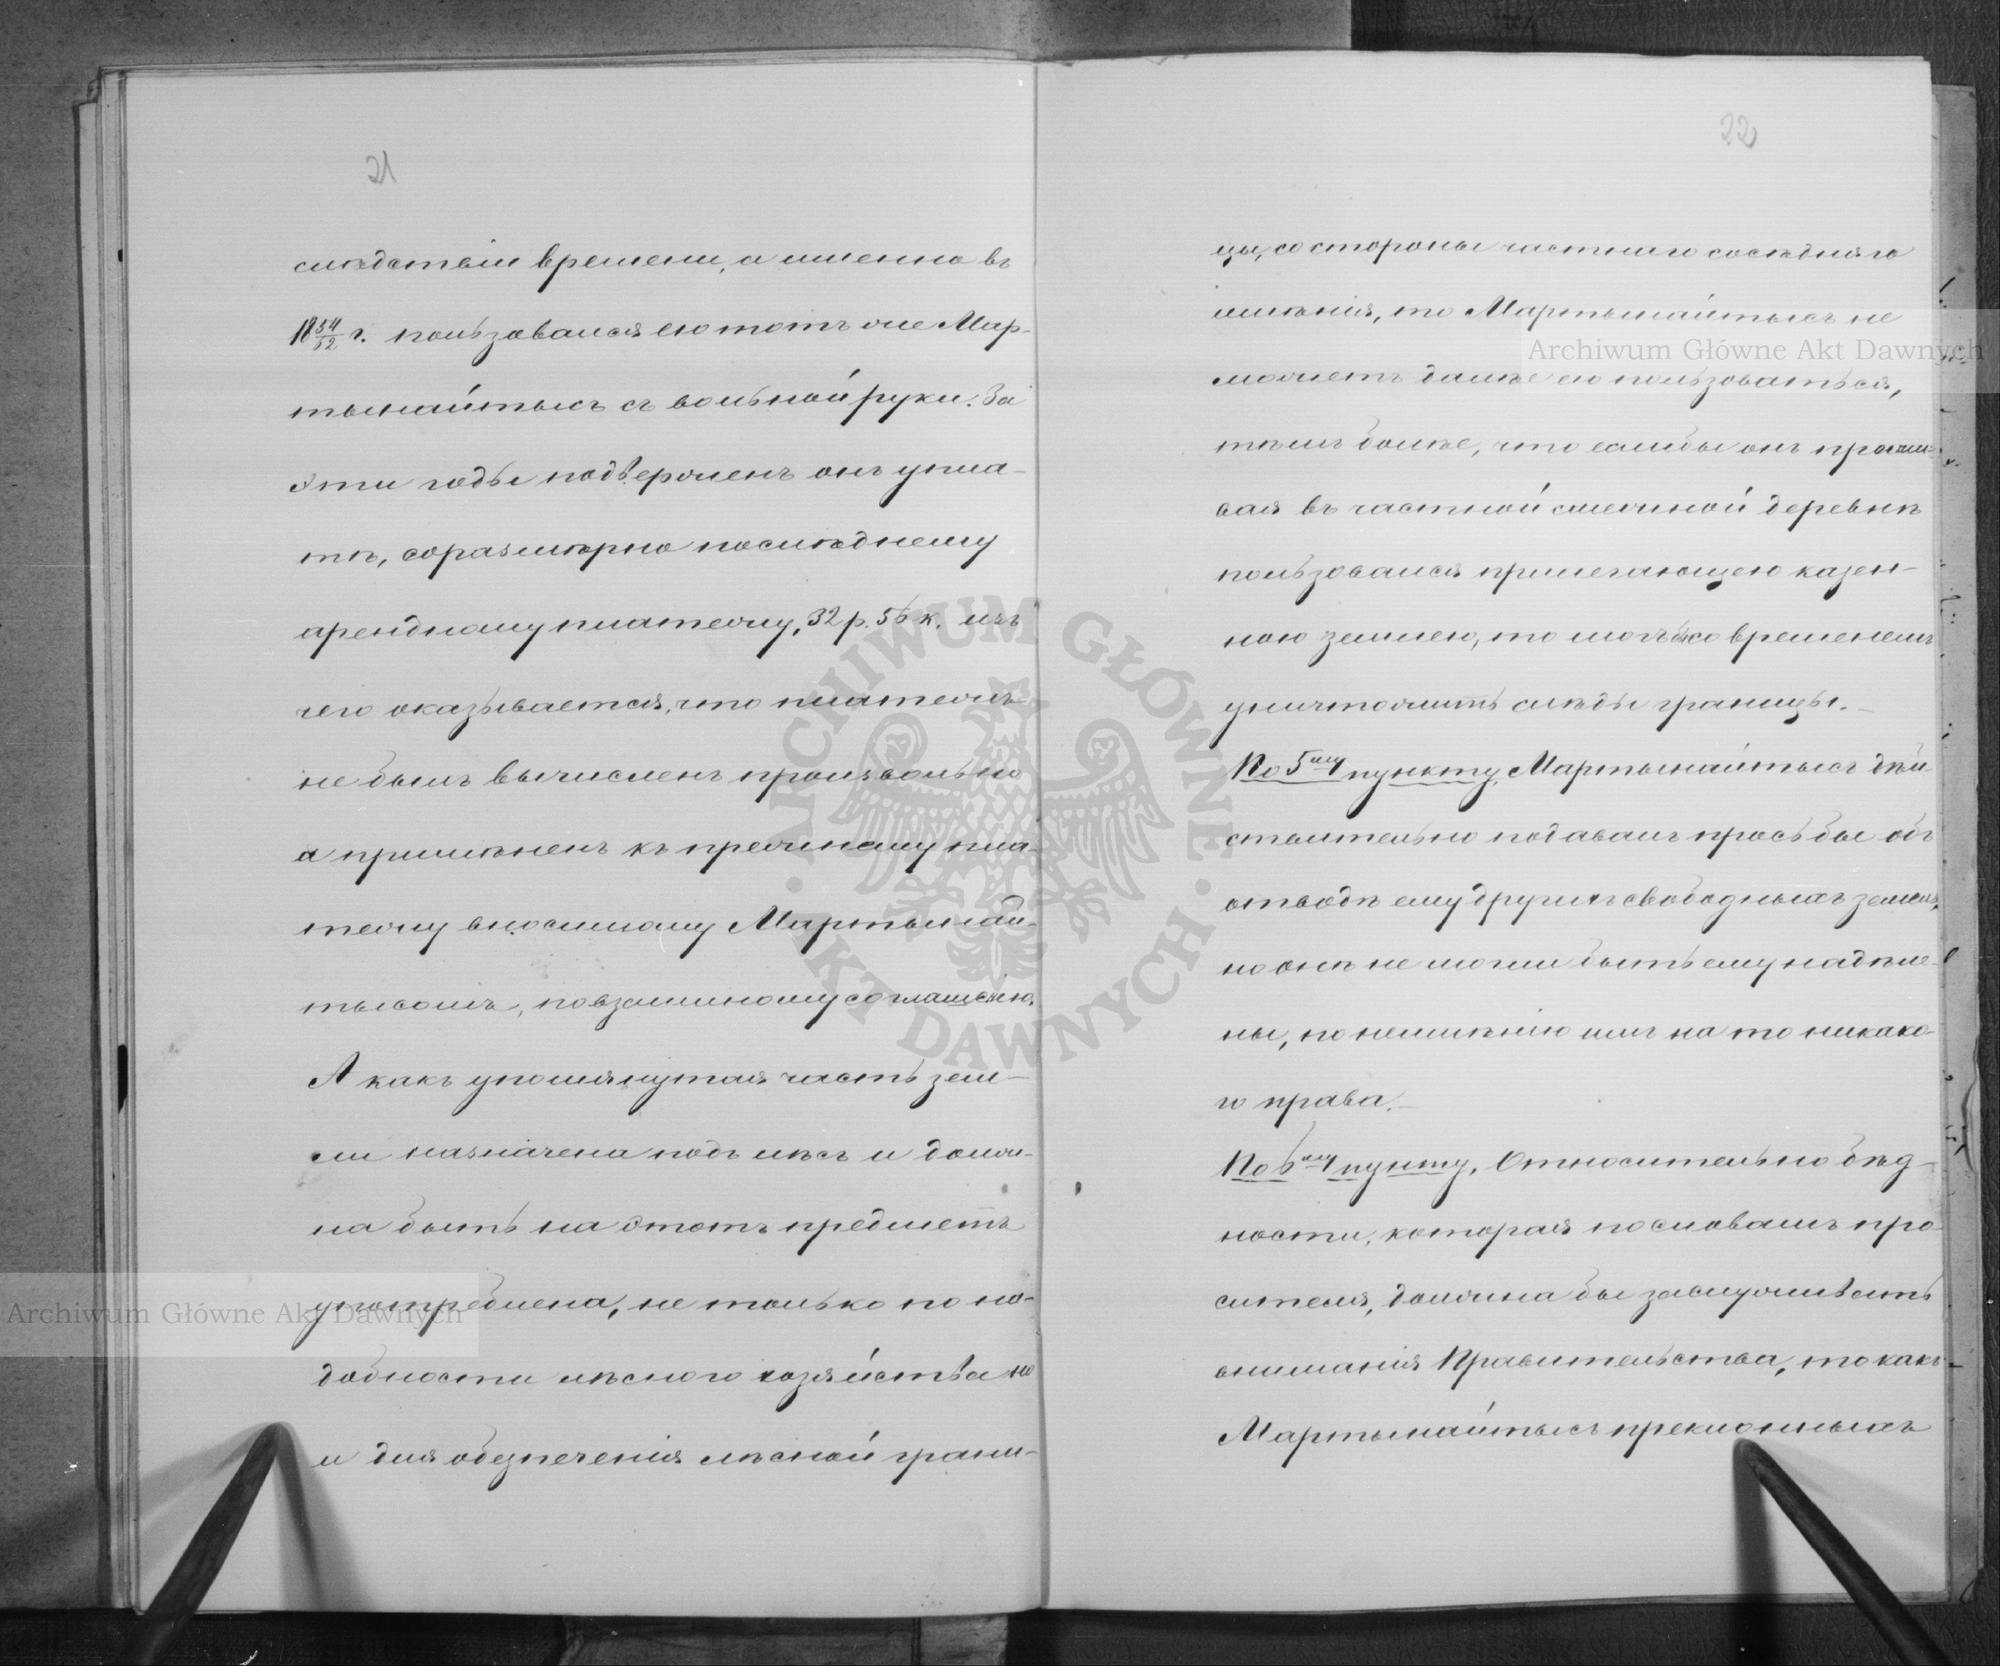 21
слѣдствіи времени, а именно въ
18 54/52 г. пользовался ею тотъ же Мар-
тынайтысъ съ вольной руки. За
эти годы подверженъ онъ упла-
тѣ, соразмѣрно послѣднему
арендному платежу, 32 р. 56 к. изъ
чего оказывается, что платежъ
не былъ вычисленъ произвольно
а примѣненъ къ прежнему пла-
тежу вносимому Мартынай-
тысомъ, по взаимному соглашенію.
А какъ упомянутая часть зем-
ли назначена подъ лѣсъ и долж-
на быть на этотъ предметъ
употреблена, не только по на-
добности лѣсного хозяйства но
и для обезпеченія лѣсной грани-
22
цы, со стороны частнаго сосѣдняго
имѣнія, то Мартынайтысъ не
можетъ далѣе ею пользоваться,
тѣмъ болѣе, что еслибы онъ прожи-
вая въ частной смежной деревнѣ
пользовался прилегающею казен-
ною землею, то могъ бы со временемъ
уничтожить слѣды границы.—
По 5му пункту, Мартынайтысъ дѣй-
ствительно подавалъ просьбы объ
отводѣ ему другихъ свободныхъ земель,
но онѣ не могли быть ему надѣле-
ны, по неимѣнію имъ на то никако-
го права.—
По 6му пункту, Относительно бѣд-
ности, которая по словамъ про-
сителя, должна бы заслуживать
вниманія Правительства, то какъ
Мартынайтысъ преклонныхъ
Archiwum Główne Akt Dawnych
Archiwum Główne Akt Dawnych
ARCHIWUM GŁÓWNE · AKT DAWNYCH ·